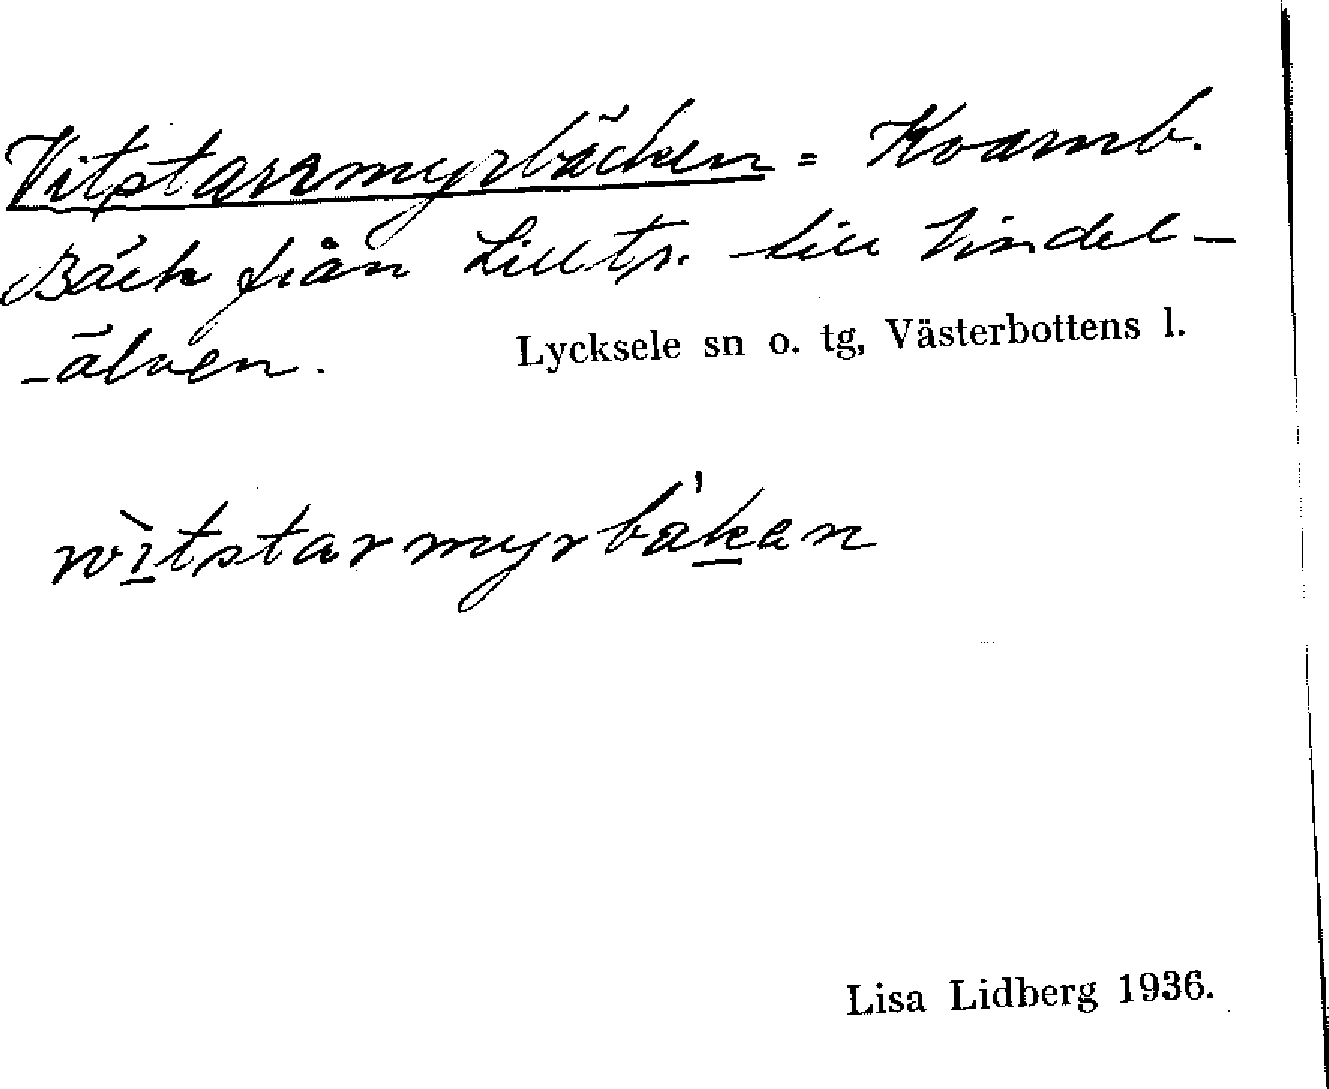 Vitstarrmyrbäcken = Kvarnb.
Bäck från Lilltr. till Vindel-
-älven.
Lycksele sn o. tg, Västerbottens l.
vìtstarmyrbäken
Lisa Lidberg 1936.